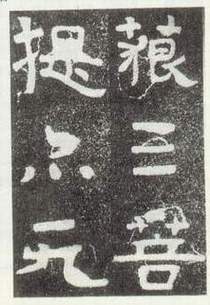 藐三菩
提亦无